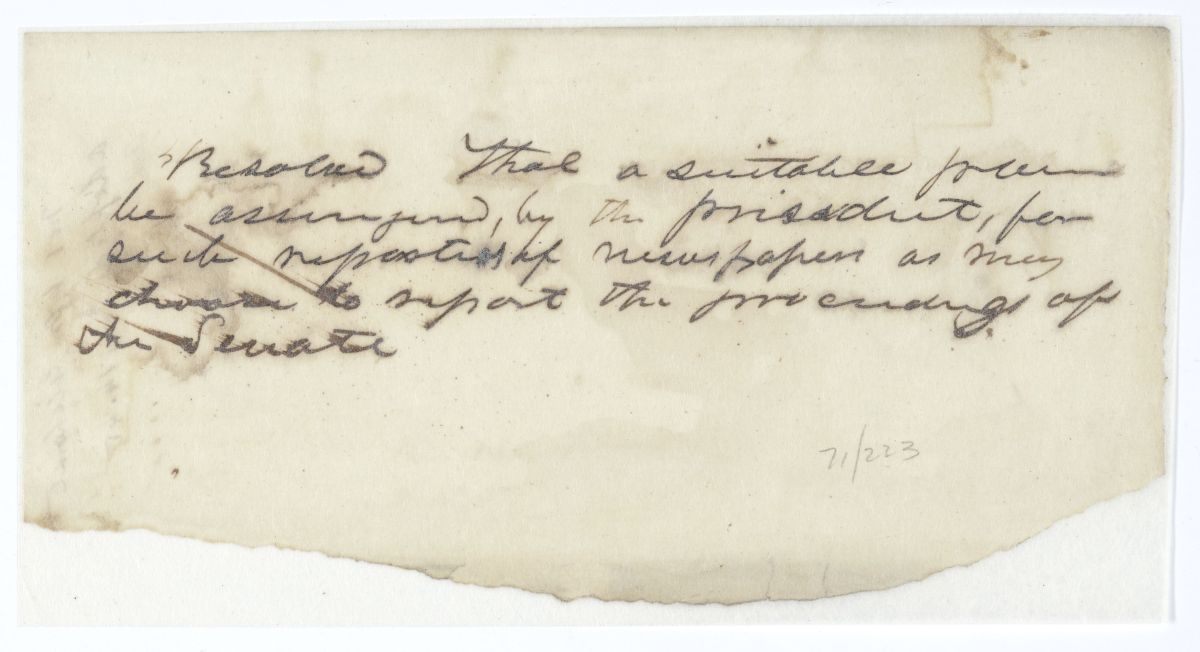 Resolved That a suitable place
be assigned, by the president, for
such reporters of newspapers as may
choose to report the proceedings of
the Senate
71/223